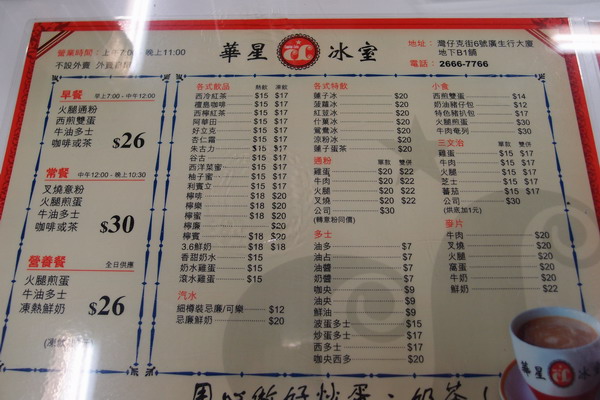 營業時間：上午7:00 - 晚上11:00
不設外賣
華星冰室
地址：灣仔克街6號廣生行大廈
地下B1舖
電話：2666-7766
早餐 早上7:00 - 中午12:00
火腿通粉
西煎雙蛋
牛油多士
咖啡或茶 $26
常餐 中午12:00 - 晚上10:30
叉燒意粉
火腿煎蛋
牛油多士
咖啡或茶 $30
營養餐 全日供應
火腿煎蛋
牛油多士
凍熱鮮奶 $26
各式飲品 熱飲 凍飲
西冷紅茶 $15 $17
禮島咖啡 $15 $17
西檸紅茶 $15 $17
阿華田 $15 $17
好立克 $15 $17
杏仁霜 $15 $17
朱古力 $15 $17
谷古 $15 $17
西洋菜蜜 $15 $17
柚子蜜 $15 $17
利賓立 $15 $17
檸啡 $18 $20
檸樂 $18 $20
檸蜜 $18 $20
檸廉 $20
檸賓 $18 $20
3.6鮮奶 $18 $18
香甜奶水 $15
奶水雞蛋 $15
滾水雞蛋 $15
汽水
細樽裝忌廉/可樂 $12
忌廉鮮奶 $20
各式特飲
蓮子冰 $20
菠蘿冰 $20
紅豆冰 $20
什菓冰 $20
鴛鴦冰 $20
涼粉冰 $20
蓮子蛋茶 $20
通粉 單款 雙併
雞蛋 $20 $22
牛肉 $20 $22
火腿 $20 $22
叉燒 $20 $22
公司 $30
(轉意粉同價)
多士
油多 $7
油占 $7
油醬 $7
奶醬 $7
咖央 $9
油央 $9
鮮油 $9
波蛋多士 $15
炒蛋多士 $17
西多士 $17
咖央西多 $20
小食
西煎雙蛋 $14
奶油豬仔包 $12
特色豬扒包 $17
火腿煎蛋 $30
牛肉奄列 $30
三文治 單款 雙併
雞蛋 $15 $17
牛肉 $15 $17
火腿 $15 $17
芝士 $15 $17
蕃茄 $15 $17
公司 $30
(烘底加1元)
麥片
牛肉 $20
叉燒 $20
火腿 $20
窩蛋 $20
牛奶 $20
鮮奶 $22
華星冰室